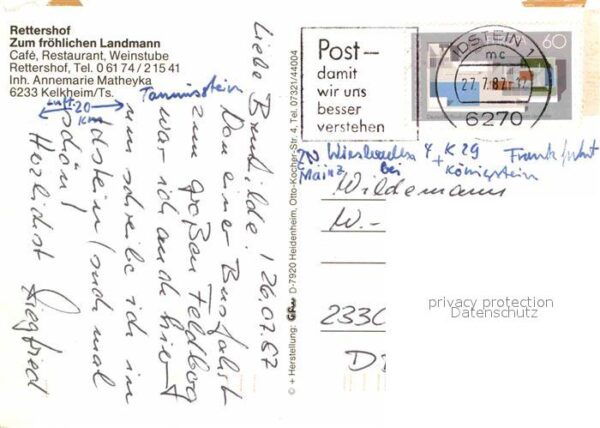 Rettershof
Zum fröhlichen Landmann
Café, Restaurant, Weinstube
Rettershof, Tel. 0 61 74 / 2 15 41
Inh. Annemarie Matheyka
6233 Kelkheim/Ts.
Luft 20 km
Taunusstein
Liebe Brunhilde! 26.07.87
Von einer Busfahrt
zum großen Feldberg
war ich auch hier
nun schreibe ich in
Idstein (auch mal
schön!
Herzlichst Siegfried
© + Herstellung: D-7920 Heidenheim, Otto-Kocher-Str. 4, Tel. 07321/44004
Post-
damit
wir uns
besser
verstehen
IDSTEIN 1
mc
27.7.87-17
6270
60
Wiesbaden + K 29 Frankfurt
Mainz bei Königstein
Wildemann
W.-
2330
privacy protection
Datenschutz